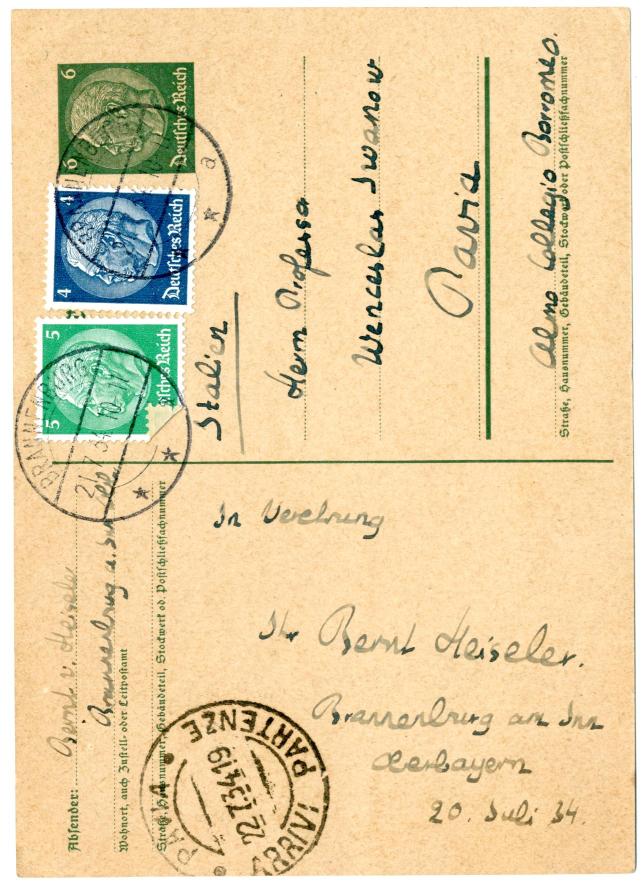 6
6
Deutsches Reich
4
4
Deutsches Reich
5
5
sches Reich
BRANNENBURG
a
BRANNENBURG
21.7.34
Italien
Herrn Professor
Wenceslao Iwanow
Pavia
Almo Collegio Borromeo.
Straße, Hausnummer, Gebäudeteil, Stockwerk oder Postschließfachnummer
Absender:
Bernt v. Heiseler
Brannenburg a. Inn
Wohnort, auch Zustell- oder Leitpostamt
Straße, Hausnummer, Gebäudeteil, Stockwerk od. Postschließfachnummer
In Verehrung
Ihr Bernt Heiseler.
Brannenburg am Inn
Oberbayern
20. Juli 34.
PAVIA
ARRIVI PARTENZE
22.7.34.19